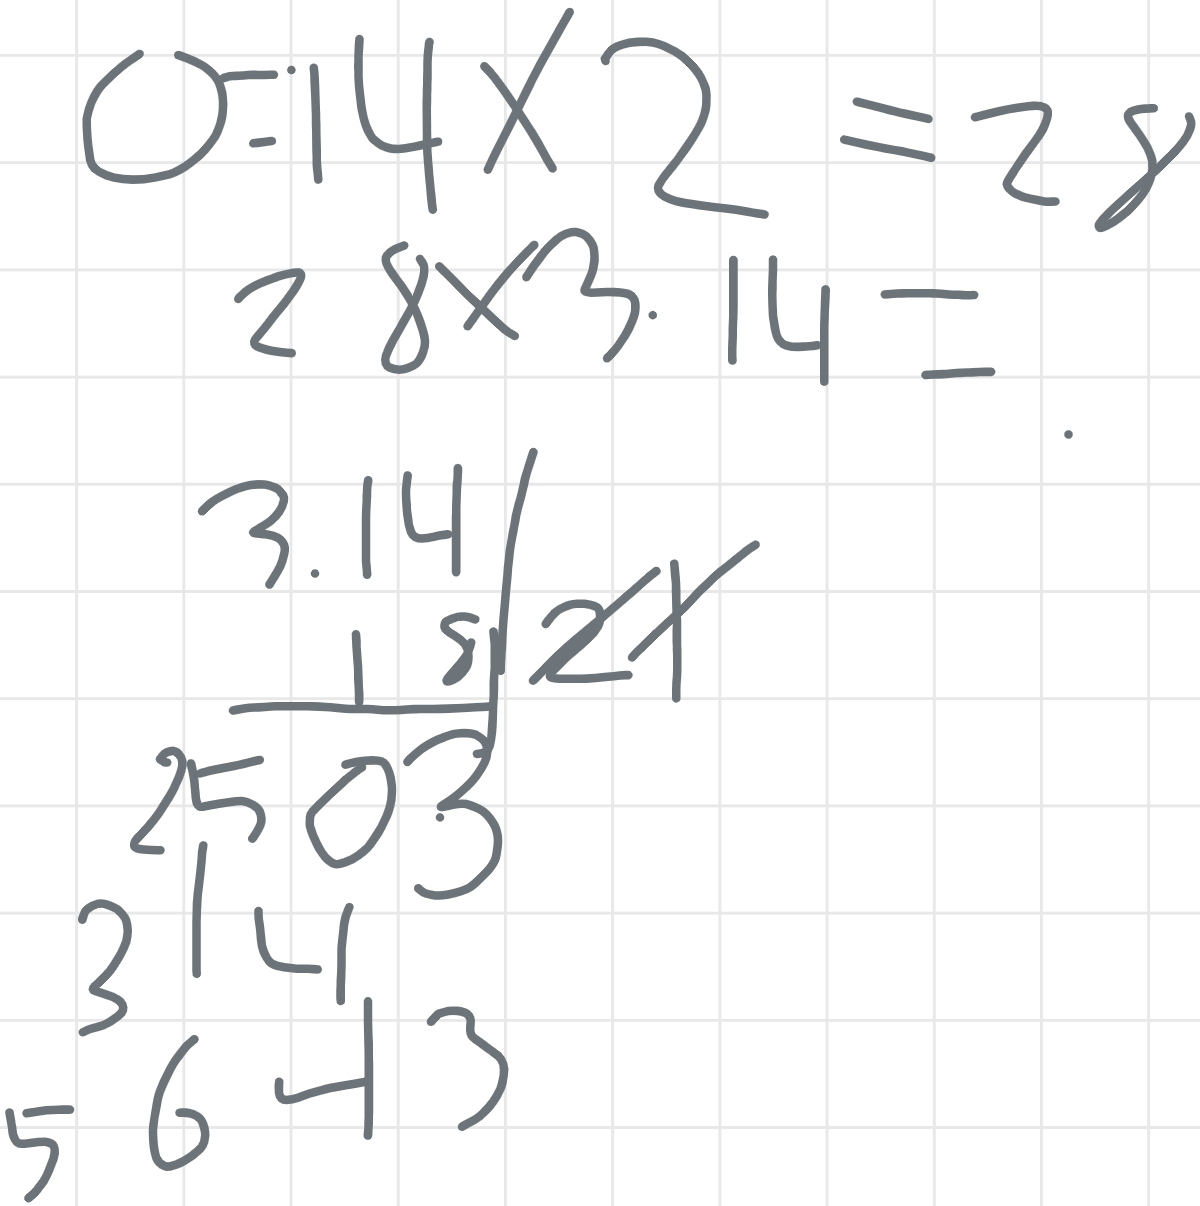 0=14×2=28
28×3.14=
3.14
18
2503
314
5643